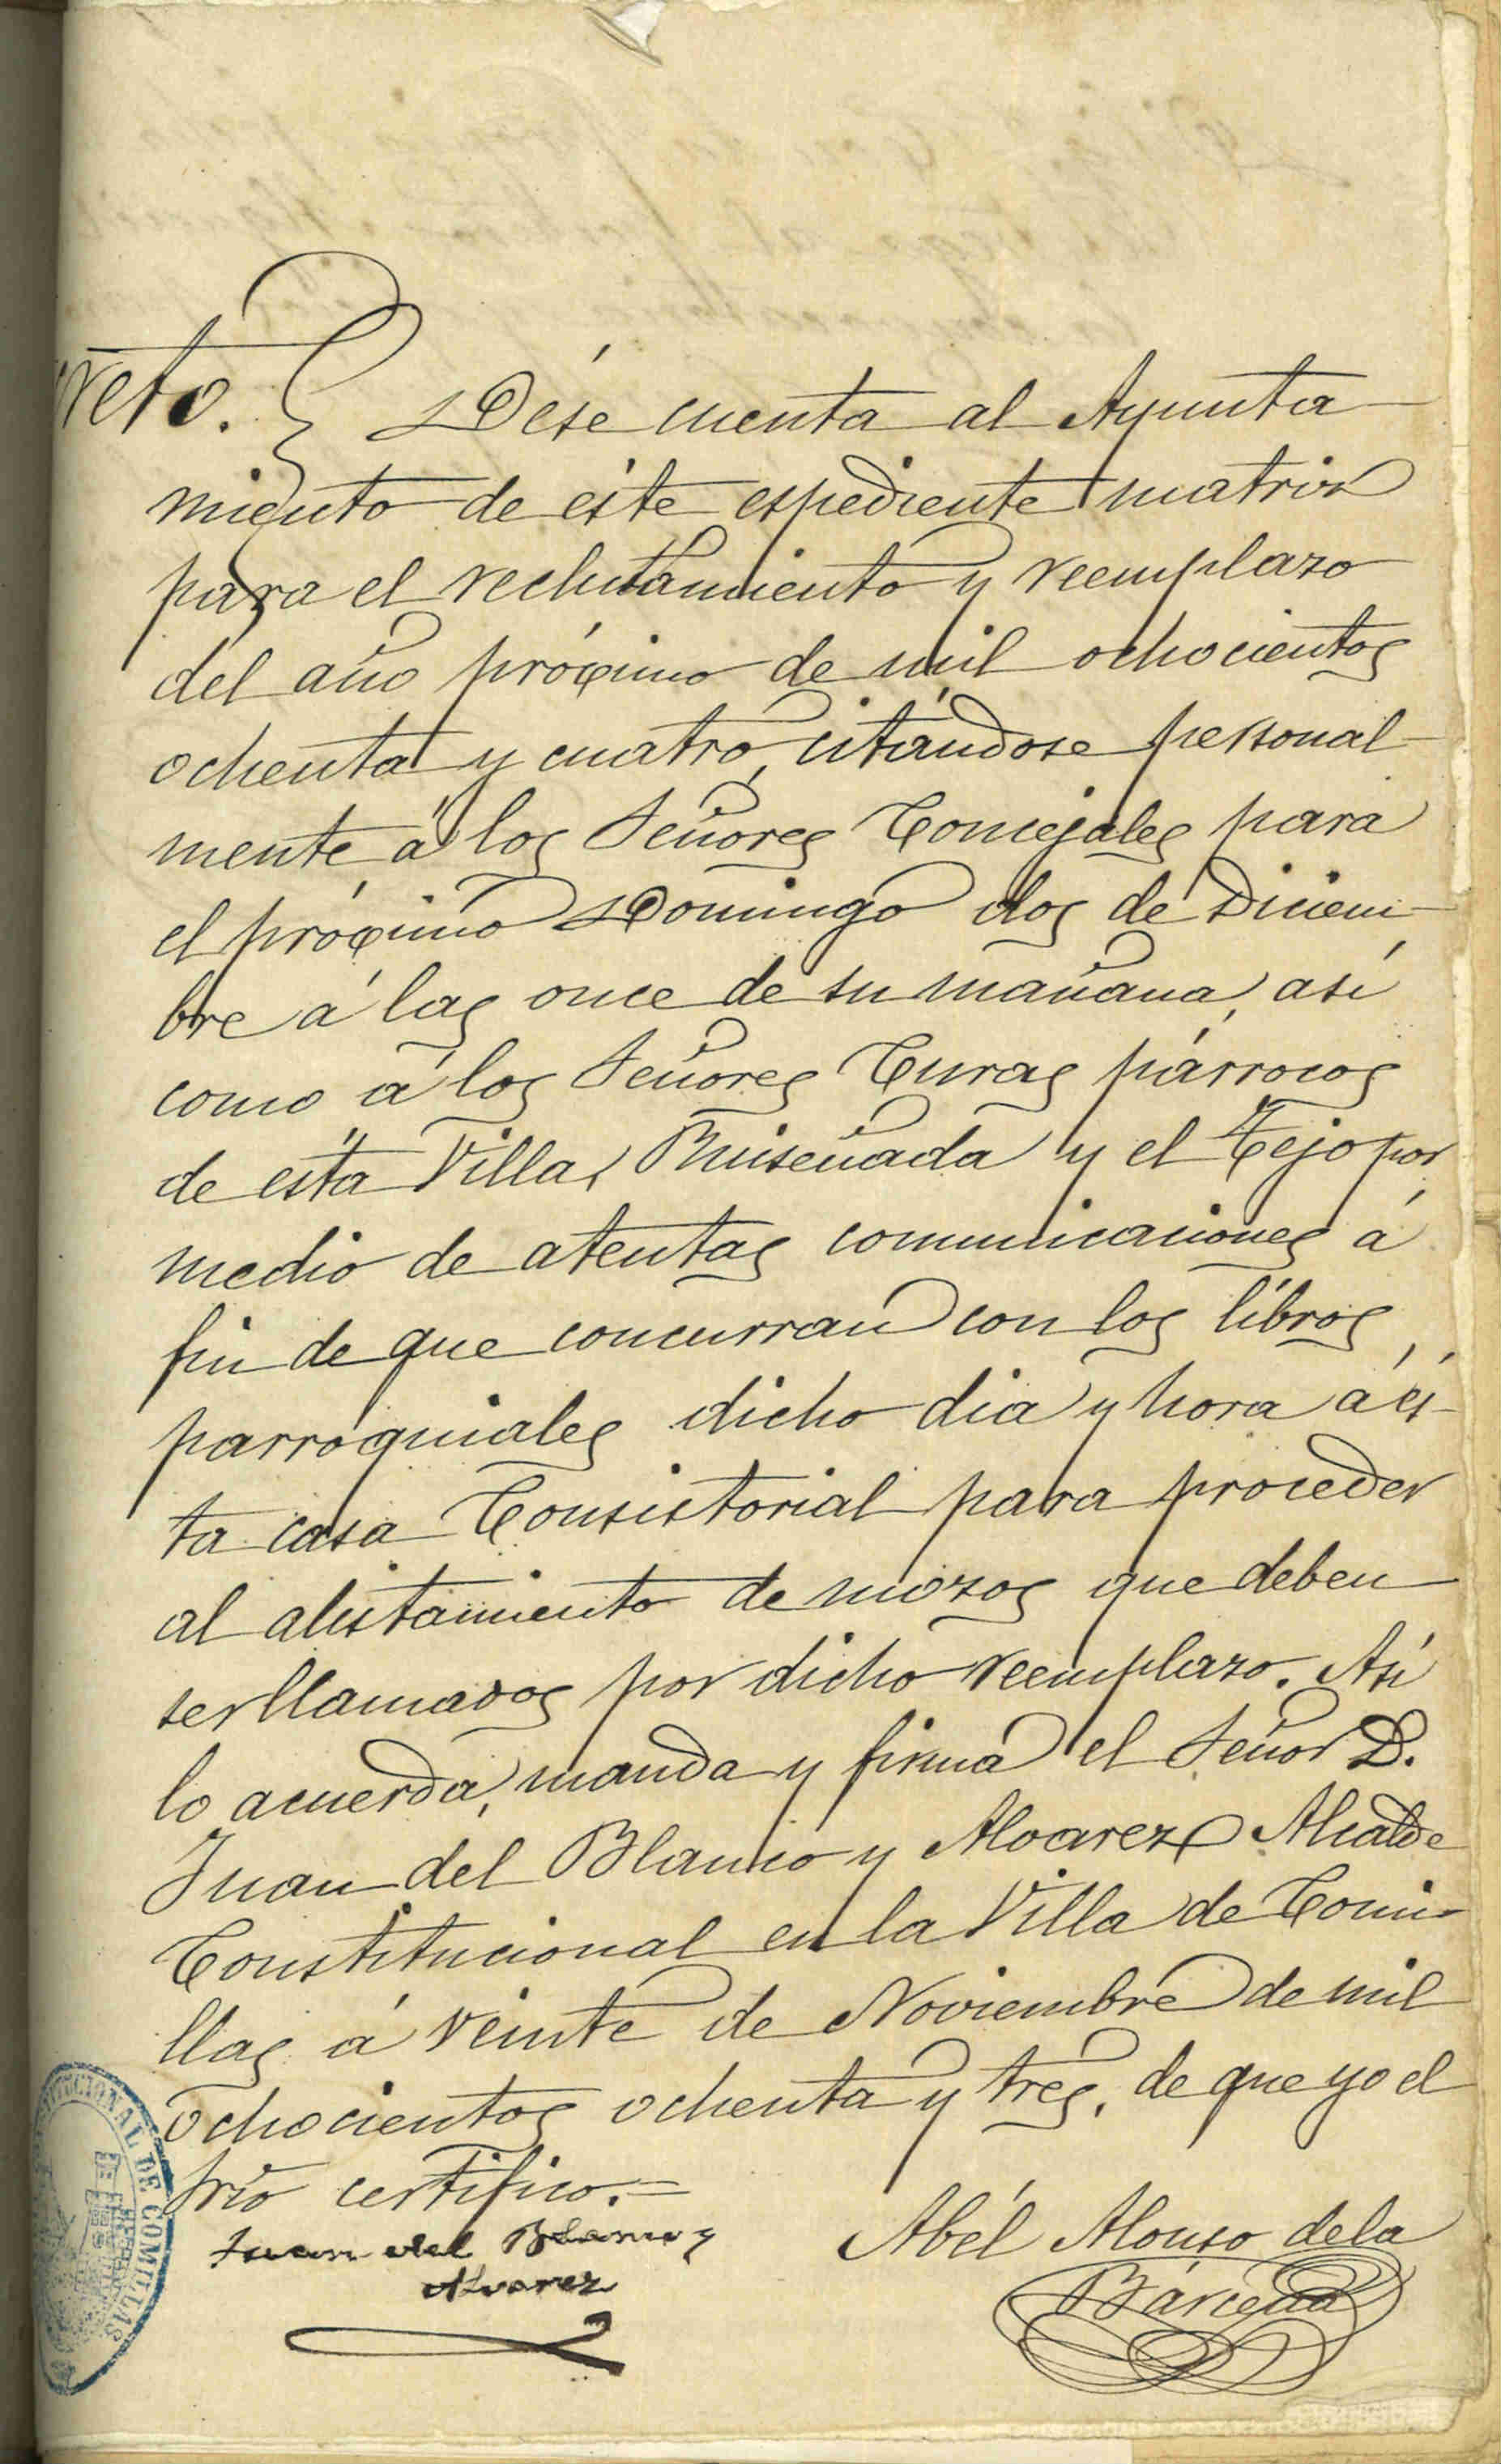 reto. Dése cuenta al Ayunta
miento de este espediente matriz
para el reclutamiento y reemplazo
del año próximo de mil ochocientos
ochenta y cuatro, citándose personal-
mente á los Señores Concejales para
el próximo Domingo dos de Diciem-
bre á las once de su mañana, así
como á los Señores Curas párrocos
de esta Villa, Ruiseñada y el Tejo por
medio de atentas comunicaciones á
fin de que concurran con los libros
parroquiales dicho dia y hora á es-
ta casa Consistorial para proceder
al alistamiento de mozos que deben
ser llamados por dicho reemplazo. Así
lo acuerda, manda y firma el Señor D.
Juan del Blanco y Alvarez Alcalde
Constitucional en la Villa de Comi-
llas á veinte de Noviembre de mil
ochocientos ochenta y tres, de que yo el
Srio certifico.=
Juan del Blanco y
Alvarez
Abél Alonso de la
Bárcena
DE COMILLAS